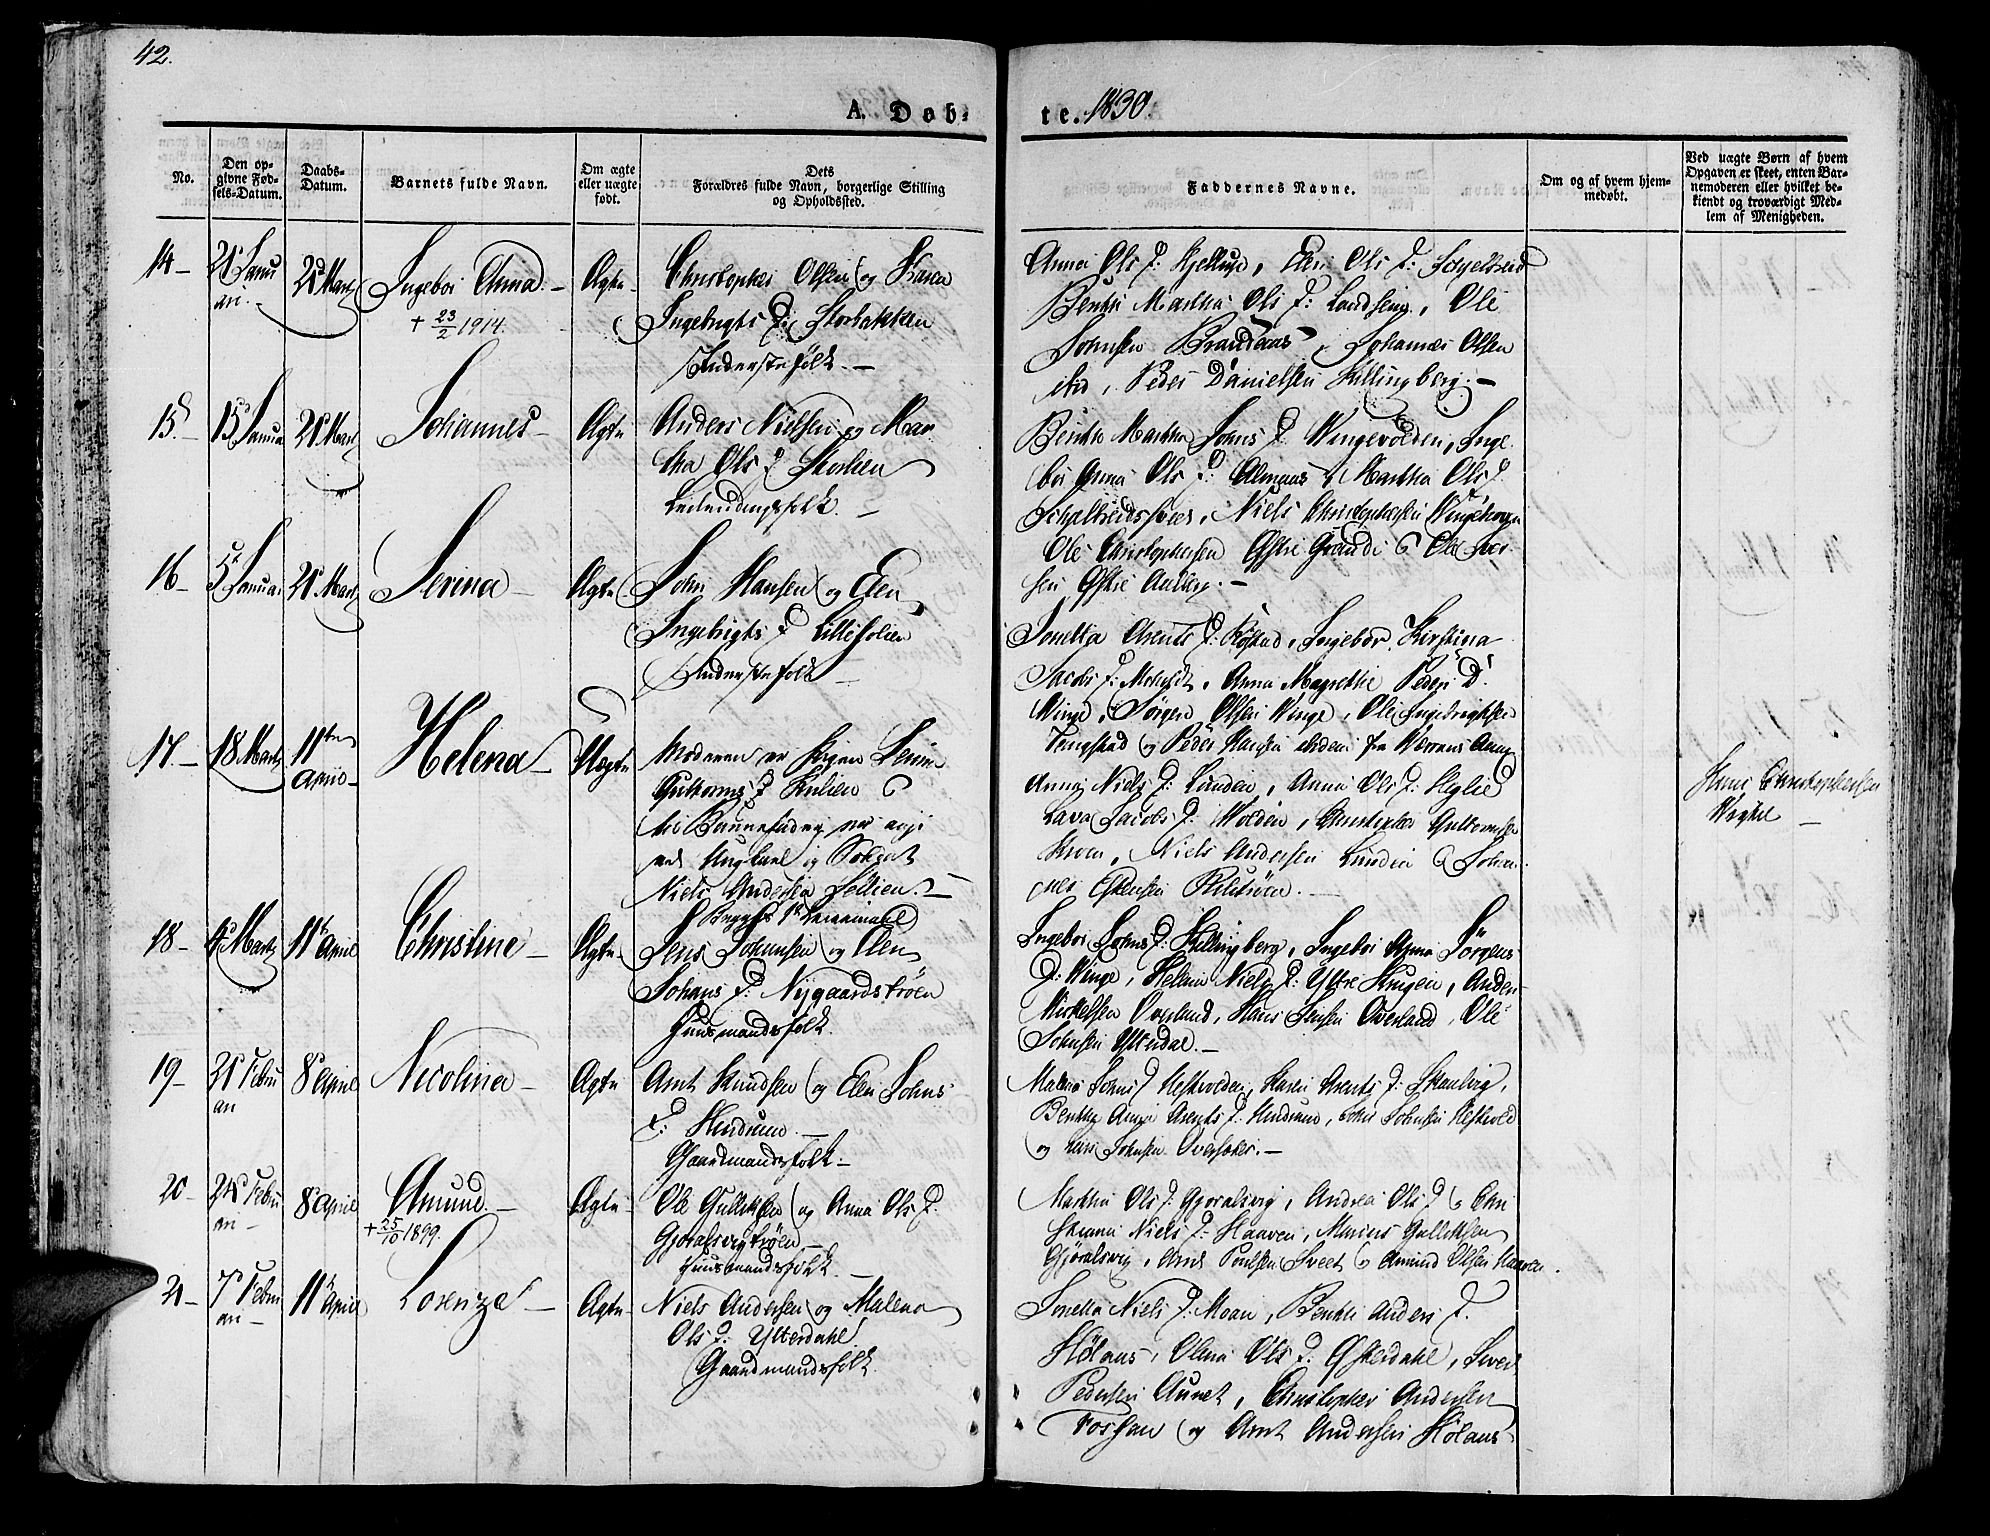 42.
A. Døb-
te. 1830.
No.
Den op-
givne Fød-
sels-Datum.
Daabs-
Datum.
Barnets fulde Navn.
Om ægte
eller uægte
født.
Dets
Forældres fulde Navn, borgerlige Stilling
og Opholdssted.
Faddernes Navne.
Om og af hvem hjem-
medøbt.
Ved uægte Børn af hvem
Opgaven er skeet, enten Bar-
nemoderen eller hvilket be-
kiendt og troværdigt Med-
lem af Menigheden.
14 21 Janu
ari 21 Martz Ingebor Anna Ægte
+ 23/2 1914.
Christopher Olsen og Karen
Ingebrigts D: Storbakken
Inderstefolk.
Anna Ols D: Hjellup, Elen Ols D:
Benthe Martha Ols D: , Ole
Johnsen Brandaas, Johannes Olsen
ibid, Peder Danielsen Killingberg.
15. 15 Janua 21 Martz Johannes Ægte
Anders Nielsen og Mar
tha Ols D Storlien
Leilendingsfolk.
Benthe Martha Johns D: Wingevolden, Inge
bor Anna Ols D: Almaas, Martha Ols D.
Niels Christophersen Wingehougen
Ole Christophersen Østre Grande & Ole Iver
sen Østre Aaberg.
16 5 Janua 21 Martz Serina Ægte
John Hansen og Elen
Ingebrigts D Lillefolien
Inderstefolk
Jonetta Arents D: , Ingebor Kirstina
Jacobs D: , Anna Magrethe Peders D.
Winge, Jørgen Olsen Winge, Ole Ingebrigtsen
og Peder Hansen
17. 18 Martz 11te April Helena Uægte
Moderen er Pigen
Guttorms D
Barnefader
Ungkarl og Soldat
Niels Andersen
Begges 1ste Leiermaal
Anna Niels D: Lunden, Anna Ols D: Heglie
Lava Jacobs D: Wolden, Christopher Guttormsen
Moen, Niels Andersen Lunden & Johan
nes Eskensen
Hans Christophersen
Weghe
18 4 Martz 11te April Christine Ægte
Jens Johansen og Elen
Johans D. Nygaardstrøen
Huusmandsfolk.
Ingebor Johns D: Killingberg, Ingebor Anna Jørgens
D: Winge, Helena Niels D: Yttre Krogen, Anders
Mikkelsen Overland, Hans Jensen Overland, Ole
Johnsen Ytterdal.
19 21 Febru
ari 8 April Nicolina Ægte
Arnt Knudsen og Elen Johns
D: Hindrum
Gaardmandsfolk.
Malena Johns D Hestvolden, Karen Arents D: Skaulvig,
Benthe Anna Arents D: Hindrum, John Johnsen Hestvold
og Hans Johnsen Oversøker.
20 24 Febru
ari 8 April Amund. Ægte
+ 25/10 1899.
Ole Gulliksen og Anna Ols D.
Gjøralsvigtrøen
Huusmandsfolk.
Martha Ols D: Gjøralsvig, Andrea Ols D & Chri
stianna Niels D: Haaven, Marius Gulliksen
Gjøralsvig, Arnt Poulsen Sveet & Amund Olsen Haaven.
21 7 Febru
ari 11te April Lorenze Ægte
Niels Andersen og Malena
Ols D: Ytterdahl
Gaardmandsfolk
Jonetta Niels D: Moan, Benthe Anders D.
Hølaas, Olena Ols D: Østerdahl, Siver
Pedersen Aunet, Christopher Andersen
Fossan og Arnt Andersen Hølaas